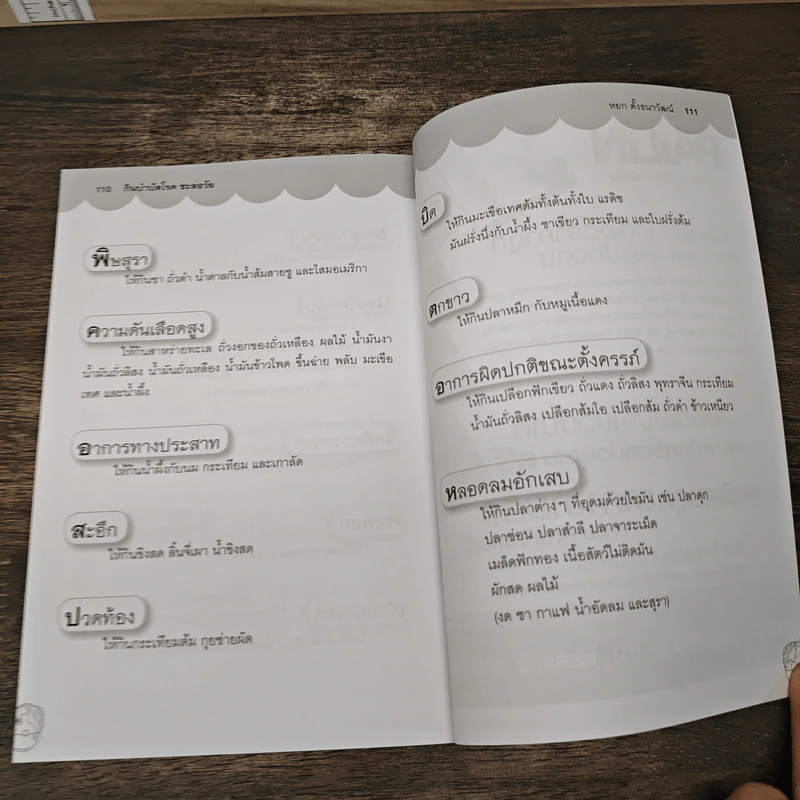 110 กินบำบัดโรค ชะลอวัย
พิษสุรา
ให้กินชา ถั่วดำ น้ำตาลกับน้ำส้มสายชู และโสมอเมริกา
ความดันเลือดสูง
ให้กินสาหร่ายทะเล ถั่วงอกของถั่วเหลือง ผลไม้ น้ำมันงา
น้ำมันถั่วลิสง น้ำมันถั่วเหลือง น้ำมันข้าวโพด ขึ้นฉ่าย พลับ มะเขือ
เทศ และน้ำผึ้ง
อาการทางประสาท
ให้กินน้ำผึ้งกับนม กระเทียม และเกาลัด
สะอึก
ให้กินขิงสด ลิ้นจี่เผา น้ำขิงสด
ปวดท้อง
ให้กินกระเทียมต้ม กุยช่ายผัด
หยก ตั้งธนาวัฒน์ 111
บิด
ให้กินมะเขือเทศต้มทั้งต้นทั้งใบ แรดิช
มันฝรั่งนึ่งกับน้ำผึ้ง ชาเขียว กระเทียม และใบฝรั่งต้ม
ตกขาว
ให้กินปลาหมึก กับหมูเนื้อแดง
อาการผิดปกติขณะตั้งครรภ์
ให้กินเปลือกฟักเขียว ถั่วแดง ถั่วลิสง พุทราจีน กระเทียม
น้ำมันถั่วลิสง เปลือกส้มโอ เปลือกส้ม ถั่วดำ ข้าวเหนียว
หลอดลมอักเสบ
ให้กินปลาต่างๆ ที่อุดมด้วยไขมัน เช่น ปลาดุก
ปลาช่อน ปลาสำลี ปลาจาระเม็ด
เมล็ดฟักทอง เนื้อสัตว์ไม่ติดมัน
ผักสด ผลไม้
(งด ชา กาแฟ น้ำอัดลม และสุรา)